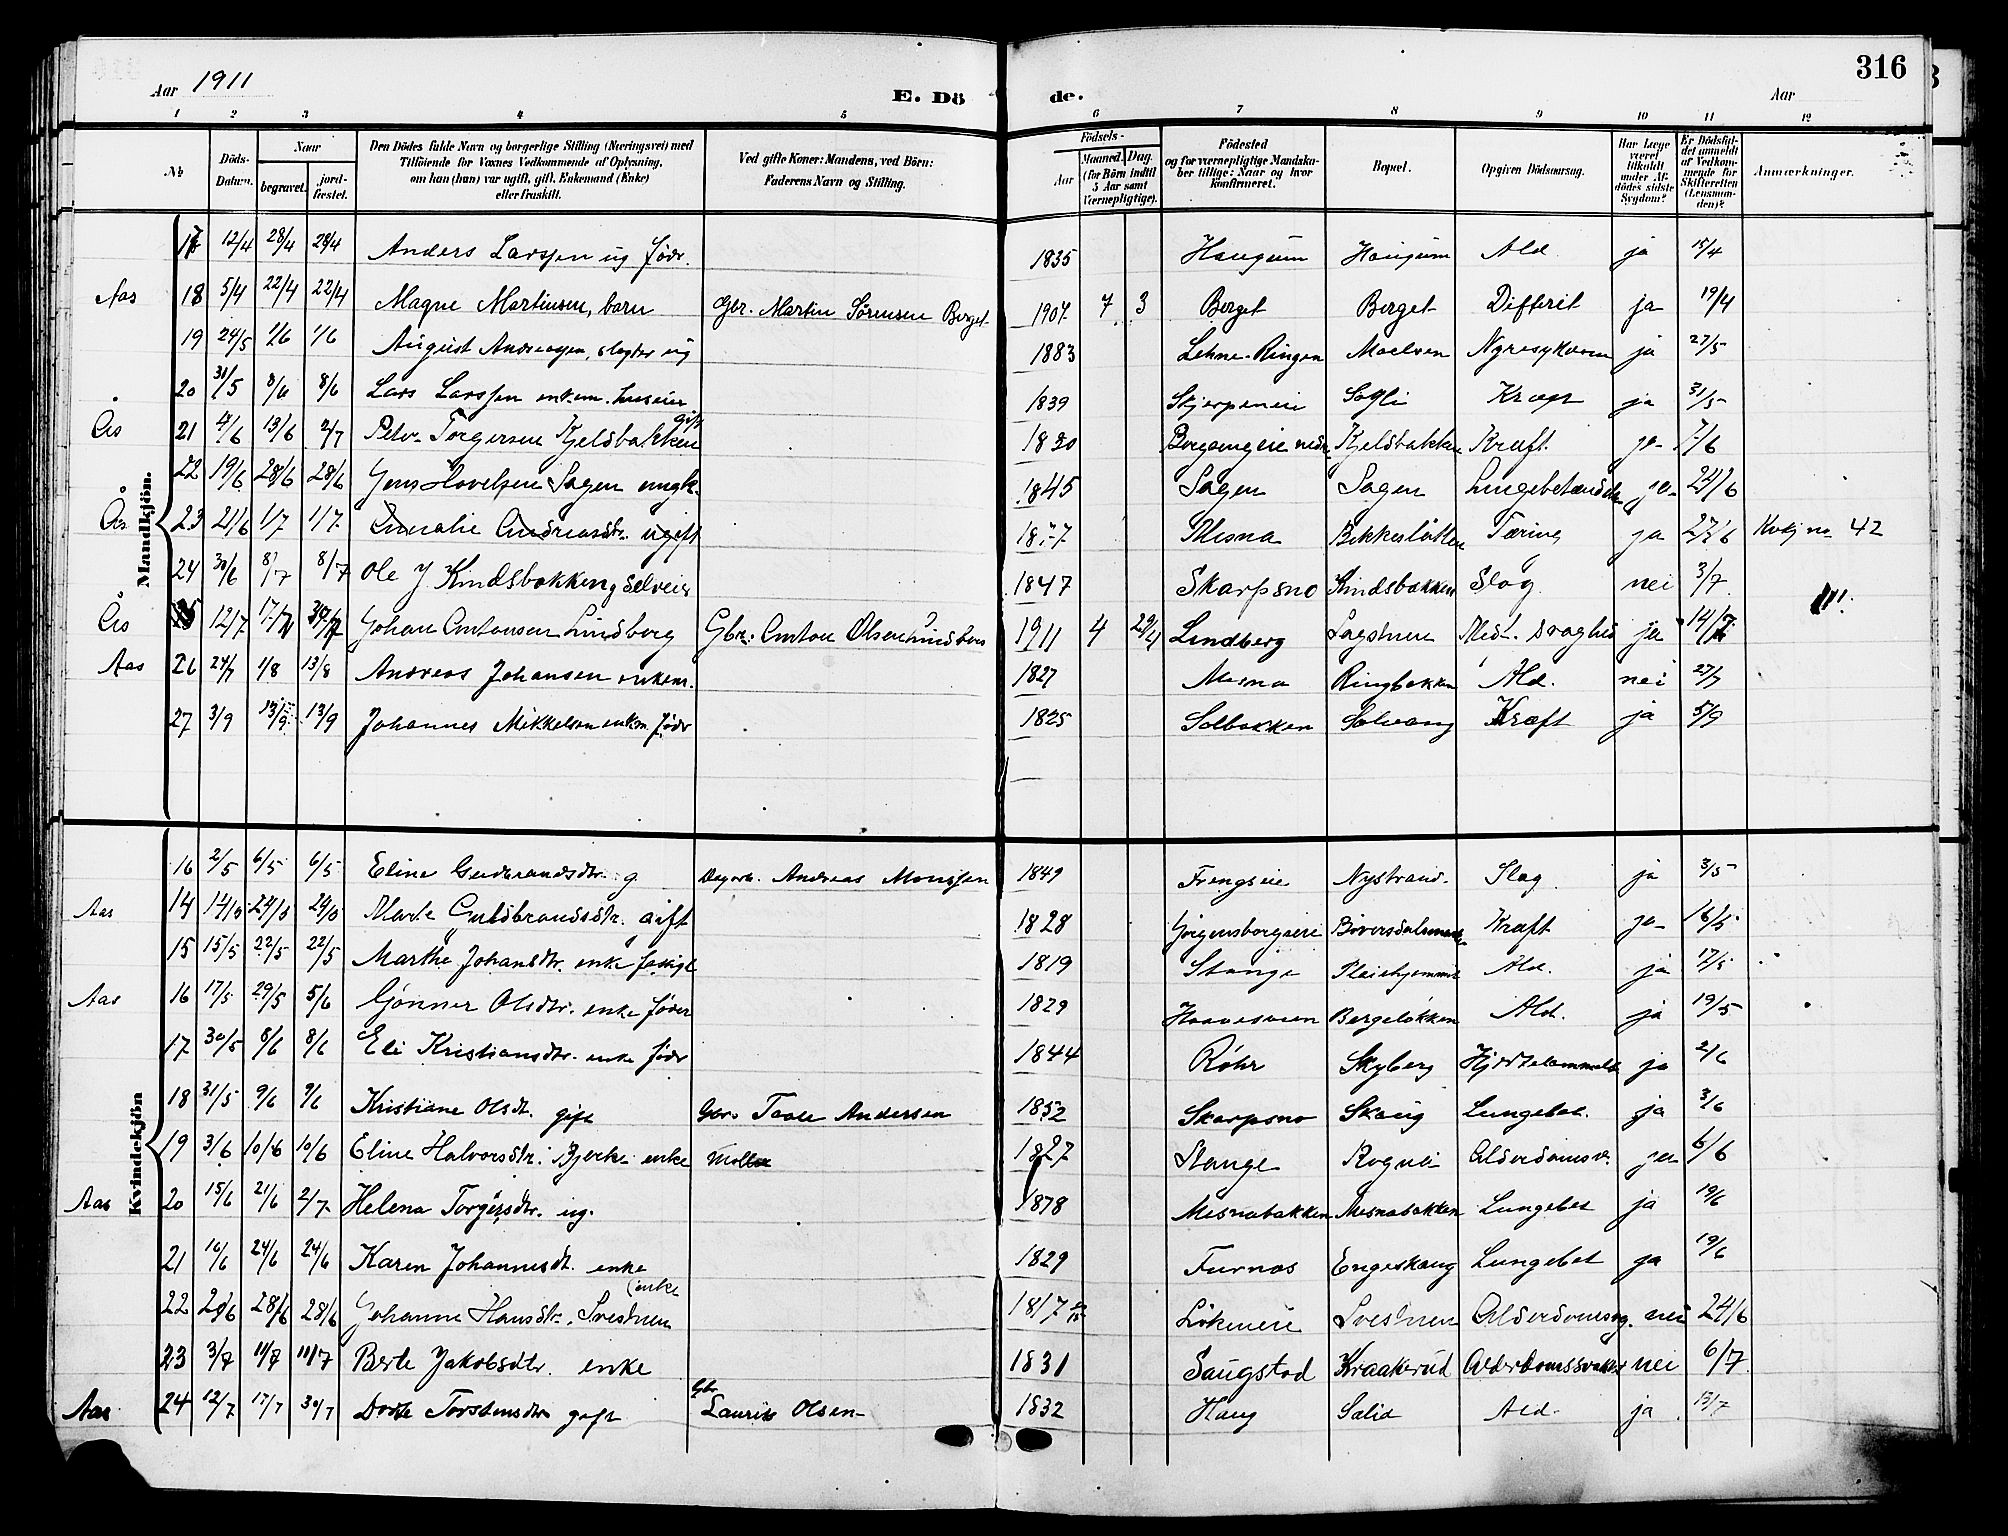 316
Aar 1911
E. Dö de.
Aar
1 2 3 4 5 6 7 8 9 10 11 12
№
Döds-Datum.
Naar
begravet.
jord-fæstet.
Den Dödes fulde Navn og borgerlige Stilling (Næringsvei) med
Tilföiende for Voxnes Vedkommende af Oplysning,
om han (hun) var ugift, gift, Enkemand (Enke)
eller fraskilt.
Ved gifte Koner: Mandens, ved Börn:
Faderens Navn og Stilling.
Födsels-
Aar
Maaned. Dag.
(for Börn indtil
5 Aar samt
Værnepligtige).
Födested
og for værnepligtige Mandska-
ber tillige: Naar og hvor
konfirmeret.
Bopæl.
Opgiven Dödsaarsag.
Har Læge
været
tilkaldt
under Af-
dödes sidste
Sygdom?
Er Dödsfal-
det anmeldt
af Vedkom-
mende for
Skifteretten
(Lensman-
den)?
Anmærkninger.
Mandkjön.
17 12/4 28/4 28/4 Anders Larssen ug fødr. 1835 Haugum Haugum Ald. ja 15/4
Aas 18 5/4 22/4 22/4 Magne Martinsen, barn Gbr. Martin Sørensen Berget 1907 7 3 Berget Berget Difterit ja 19/4
19 24/5 1/6 1/6 August Andreasen, slagter ug 1883 Lehne-Ringen Moelven Nyresykdom ja 27/5
20 31/5 8/6 8/6 Lars Larssen enkem. huseier 1839 Skjerpeneie Sagli Kræft ja 31/5
Ås 21 4/6 13/6 2/7 Peter Torgersen Kjeldsbakken gift 1830 Kjeldsbakken Kræft. ja 7/6
22 19/6 28/6 28/6 Jens Hovelsen Sagen ungk. 1845 Sagen Sagen Lungebetændelse ja 24/6
Ås 23 21/6 1/7 1/7 Amalie Andreasdtr. ugift 1877 Mesna Bekkesløtten Tæring ja 27/6 Kvkj no 42
24 30/6 8/7 8/7 Ole J. Kindsbakken g selveier 1847 Skarpsno Kindsbakken Slag nei 3/7
Ås 25 12/7 17/7 30/7 Johan Antonsen Lindberg Gbr: Anton Olsen Lindberg 1911 4 29/4 Lindberg Sagstuen Medf. svaghed ja 14/7
Aas 26 24/7 1/8 13/8 Andreas Johansen enkem. 1827 Mesna Ringbakken Ald. nei 27/7
27 3/9 13/9 13/9 Johannes Mikkelsen enkem fødr 1825 Solbakken Solvang Kræft ja 5/9
Kvindekjön
16 2/5 6/5 6/5 Eline Gudbrandsdtr. g Dagarb. Andreas Monssen 1849 Frengseie Nystrand. Slag ja 3/5
Aas 14 14/5 24/5 24/5 Marte Guldbrandsdtr. gift 1828 Jørgensborgseie Kræft ja 16/5
15 15/5 22/5 22/5 Marthe Johansdtr. enke fattigl 1819 Stange Pleiehjemmet Ald. ja 17/5
Aas 16 17/5 29/5 5/6 Gønner Olsdtr. enke føder 1829 Bergeløkken Ald. ja 19/5
17 30/5 8/6 8/6 Eli Kristiansdtr. enke fødr 1844 Røhr Skyberg Hjertelammelse ja 2/6
18 31/5 9/6 9/6 Kristiane Olsdt. gift Gbr. Taale Andersen 1852 Skarpsno Skaug Lungebet. ja 3/6
19 3/6 10/6 10/6 Eline Halvorsdtr. Bjerke enke 1827 Stange Rognli Alderdomsv. ja 6/6
Aas 20 15/6 21/6 2/7 Helena Torgersdtr. ug. 1878 Mesnabakken Mesnabakken Lungebet ja 19/6
21 16/6 24/6 24/6 Karen Johannesdt. enke 1829 Furnæs Engeskaug Lungebet ja 19/6
22 28/6 28/6 Johanne Hansdtr. Svestuen (enke 1817 Løkeneie Svestuen Alderdomsvag. nei 24/6
23 3/7 11/7 11/7 Berte Jakobsdtr. enke 1831 Saugstad Kraakerud Alderdomssvakhet nei 6/7
Aas 24 12/7 17/7 30/7 Dorte Torstensdtr gift Gbr Laurits Olsen 1832 Haug Salid Ald. ja 13/7